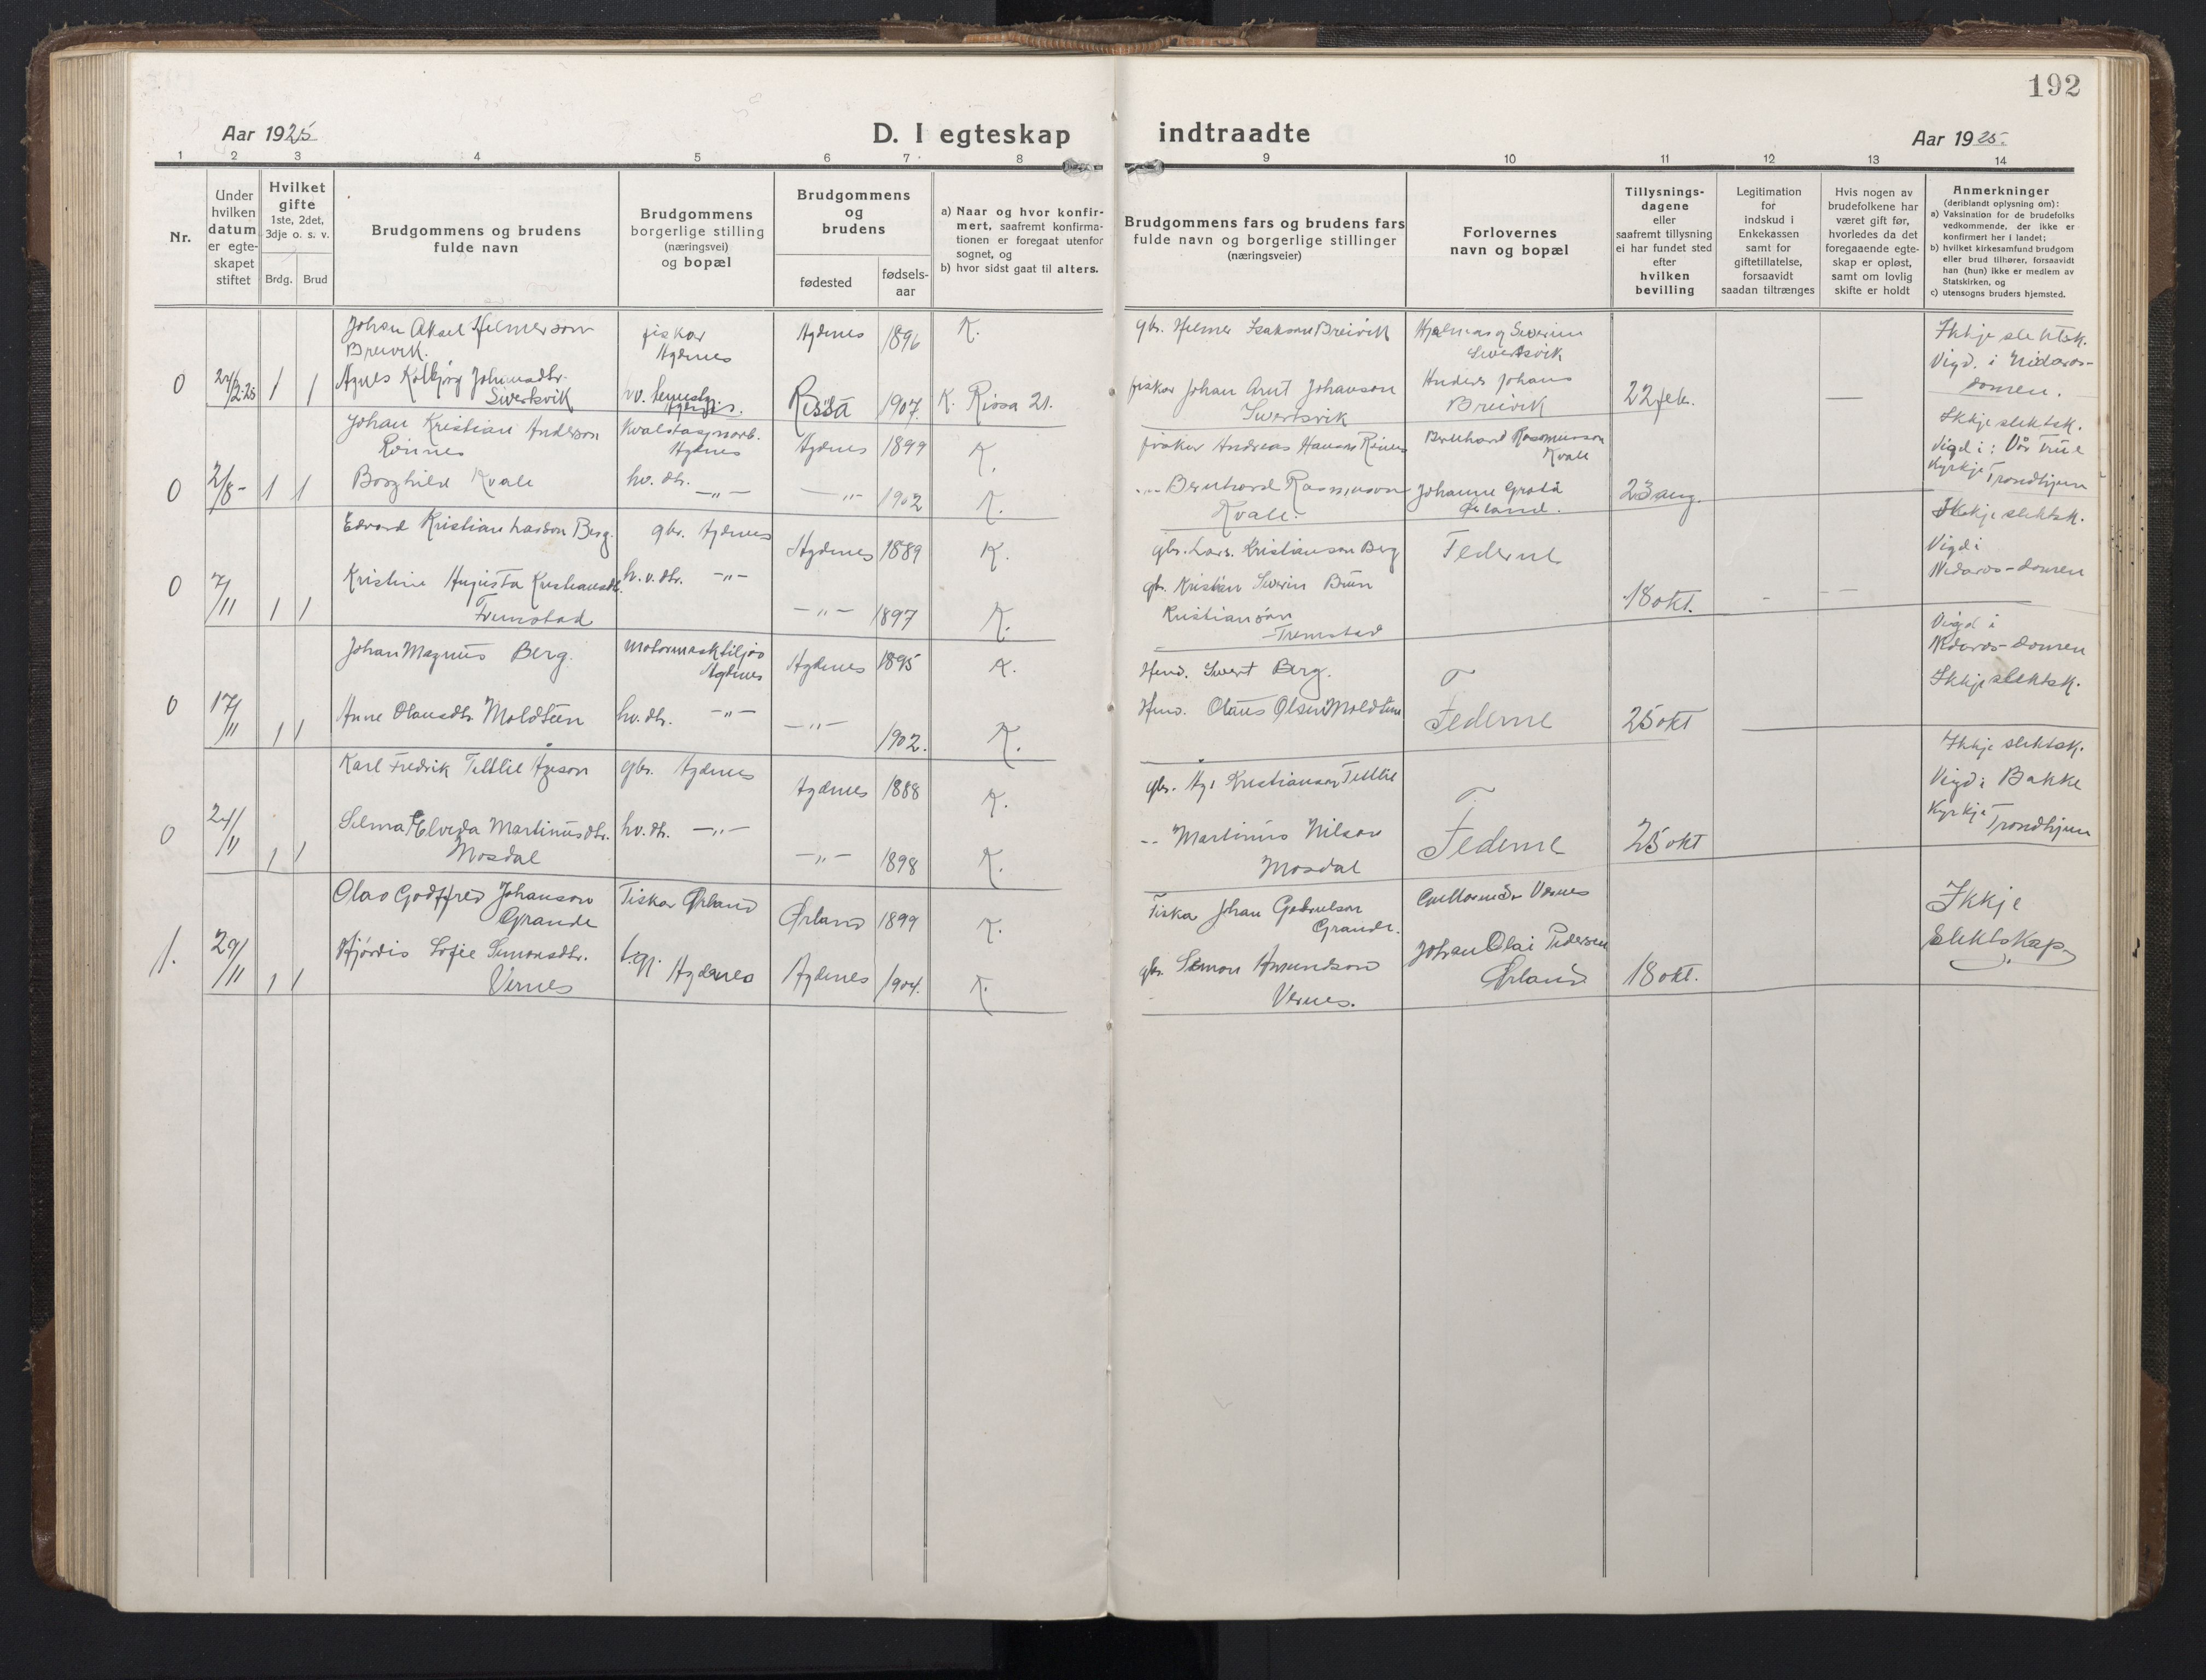 192
Aar 1925
D. I egteskap
indtraadte
Aar 1925.
1 2 3 4 5 6 7 8
9 10 11 12 13 14
Nr.
Under
hvilken
datum
er egte-
skapet
stiftet
Hvilket
gifte
1ste, 2det,
3dje o. s. v.
Brdg. Brud
Brudgommens og brudens
fulde navn
Brudgommens
borgerlige stilling
(næringsvei)
og bopæl
Brudgommens
og
brudens
fødested
fødsels-
aar
a) Naar og hvor konfir-
mert, saafremt konfirma-
tionen er foregaat utenfor
sognet, og
b) hvor sidst gaat til alters.
Brudgommens fars og brudens fars
fulde navn og borgerlige stillinger
(næringsveier)
Forlovernes
navn og bopæl
Tillysnings-
dagene
eller
saafremt tillysning
ei har fundet sted
efter
hvilken
bevilling
Legitimation
for
indskud i
Enkekassen
samt for
giftetillatelse,
forsaavidt
saadan tiltrænges
Hvis nogen av
brudefolkene har
været gift før,
hvorledes da det
foregaaende egte-
skap er opløst,
samt om lovlig
skifte er holdt
Anmerkninger
(deriblandt oplysning om):
a) Vaksination for de brudefolks
vedkommende, der ikke er
konfirmert her i landet;
b) hvilket kirkesamfund brudgom
eller brud tilhører, forsaavidt
han (hun) ikke er medlem av
Statskirken, og
c) utensogns bruders hjemsted.
Johan Aksel Helmerson
Breivik.
fiskar
Agdenes
Agdenes 1896 K.
gbr. Helmer Isakson Breivik
Sivertsvik
Ikkje slektsk.
Vigd. i Nidaros-
domen.
0 24/2-25 1 1
Agnes Kolbjørg Johansdtr.
Sivertsvik
Rissa 1907. K. Rissa 21.
fiskar Johan Arnt Johanson
Sivertsvik
Anders Johans
Breivik
22 feb. —
Johan Kristian Anderson
Rønnes
Agdenes
Agdenes 1899 K.
fisker Andreas Hanson Rønnes
Bernhard Rasmusson
Kvale
Ikkje slektsk.
Vigd i : Vår Frue
Kyrkje Trondhjem
0 2/8- 1 1
Borghild Kvale
hv. dtr. —„—
—„— 1902 K.
Bernhard Rasmusson
Kvale.
Johanne Grøtå
Ørland.
23 aug.
Edvard Kristian Larson Berg.
gbr. Agdenes
Agdenes 1889 K.
gbr. Lars. Kristianson Berg
Federne
Ikkje slektsk.
Vigd i
Nidaros-domen
0 7/11 1 1
Kristine Augusta Kristiansdtr.
Fremstad
h.v.dtr. —„—
—„— 1897 K.
gbr. Kristian Sverin Bren
Kristianson
Fremstad
18 okt. - --
Johan Magnus Berg.
Agdenes
Agdenes 1895 K.
Hmd. Sivert Berg.
Vigd i
Nidaros-domen
Ikkje slektsk.
0 17/11 1 1
Anne Olausdtr. Moldteen
hv. dtr. —„—
—„— 1902. K.
Hmd. Olaus Olsen Moldteen
Federne
25 okt
Karl Fredrik Teltlie Ågeson
gbr. Agdenes
Agdenes 1888 K.
gbr. Åge Kristianson Teltlie
Ikkje slektsk.
Vigd i Bakke
Kyrkje Trondhjem
0 24/11 1 1
Selma Elveda Martinusdtr.
Mosdal
hv. dtr. —„—
—„— 1898 K.
Martinus Nilson
Mosdal
Federne
25 okt
Olav Godtfred Johanson
Grande
Fiskar Ørland
Ørland 1899 K.
Fiskar Johan Gabrielson
Grande.
Vernes
Ikkje
slektskap
1. 29/11 1 1
Hjørdis Sofie Simonsdtr.
Vernes
Agdenes
Agdenes 1904. K.
gbr. Simon Amundson
Vernes.
Johan Olai Pedersen
Ørland
18 okt.